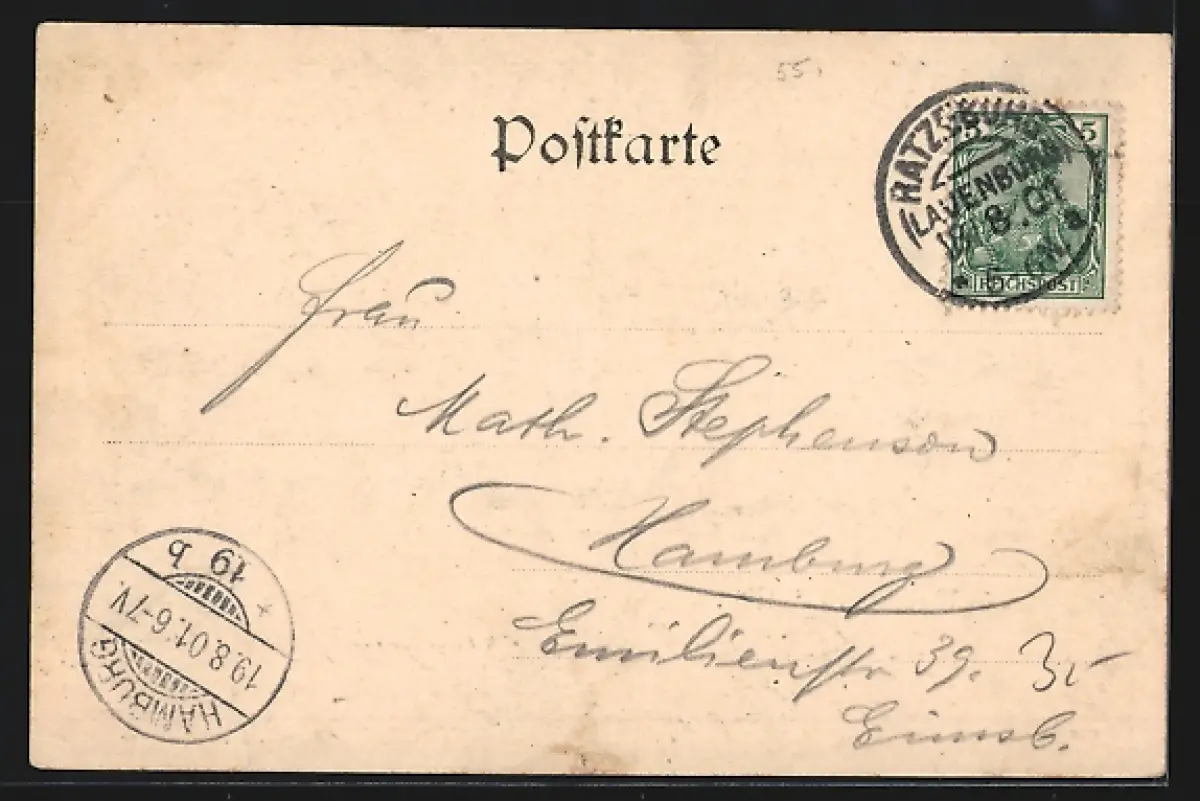 55.
Postkarte
5
RATZEBURG
(LAUENBURG)
18.8.01
REICHSPOST
Frau
Math. Stephenson
Hamburg
Emilienstr 39.
Eimsb.
19 b
19.8.01.6-7V.
HAMBURG